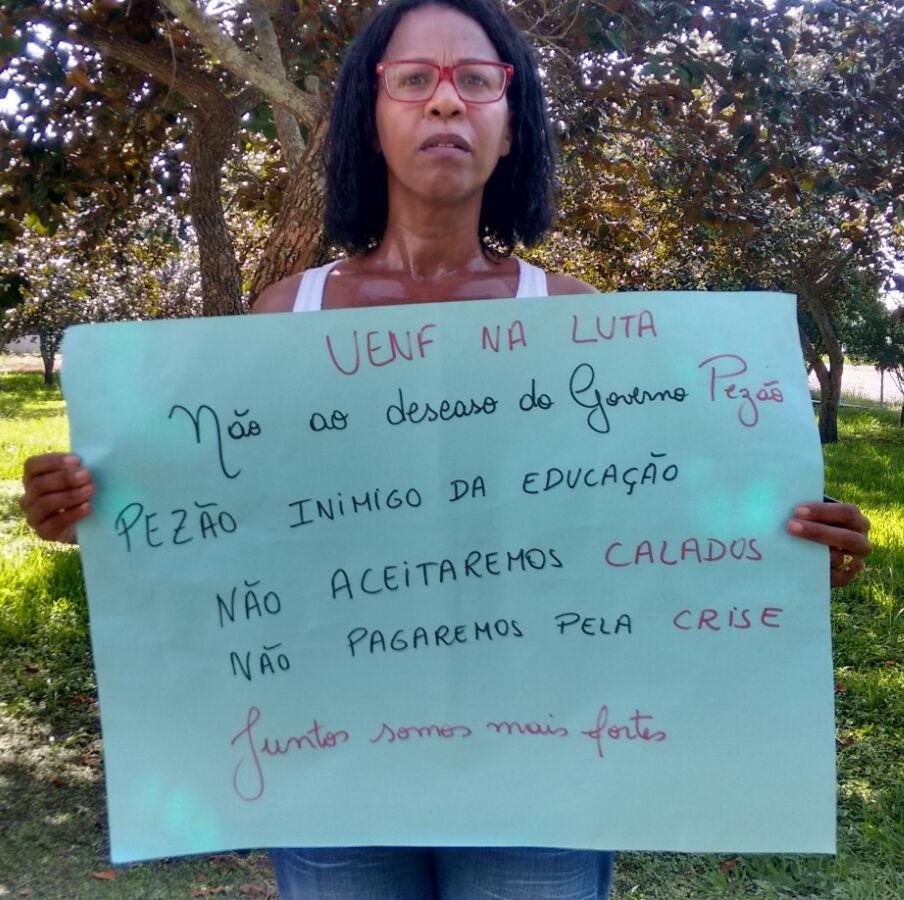 UENF NA LUTA
Não ao descaso do Governo Pezão
PEZÃO INIMIGO DA EDUCAÇÃO
NÃO ACEITAREMOS CALADOS
NÃO PAGAREMOS PELA CRISE
Juntos somos mais fortes